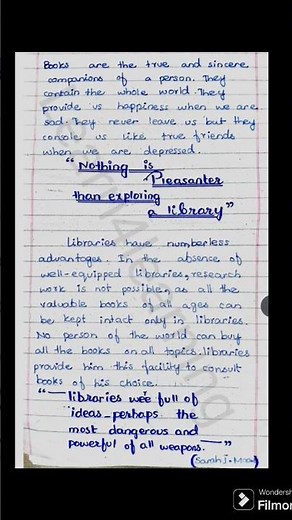 Books are the true and sincere
companions of a person. They
contain the whole world. They
provide us happiness when we are
sad. They never leave us but they
console us like true friends
when we are depressed.
"Nothing is
Pleasanter
than exploring
a library"
Libraries have numberless
advantages. In the absence of
well-equipped libraries, research
work is not possible, as all the
valuable books of all ages can
be kept intact only in libraries.
No person of the world can buy
all the books on all topics. libraries
provide him this facility to consult
books of his choice.
"— libraries weé full of
ideas - perhaps the
most dangerous and
powerful of all weapons. —"
(Sarah J.
Wondershare
Filmor